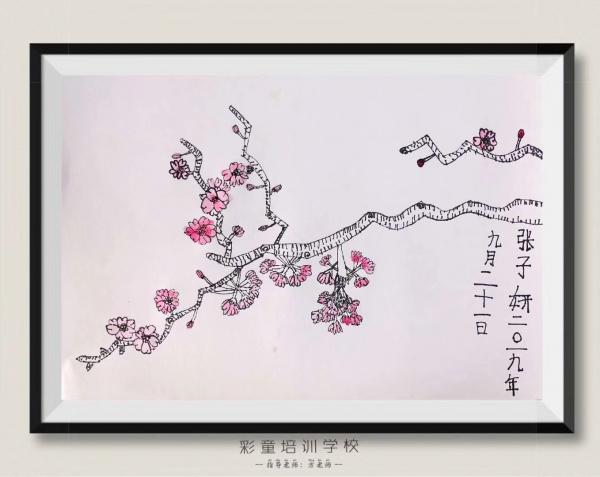 张子妍二〇一九年
九月二十一日
彩童培训学校
— 指导老师：方老师 —